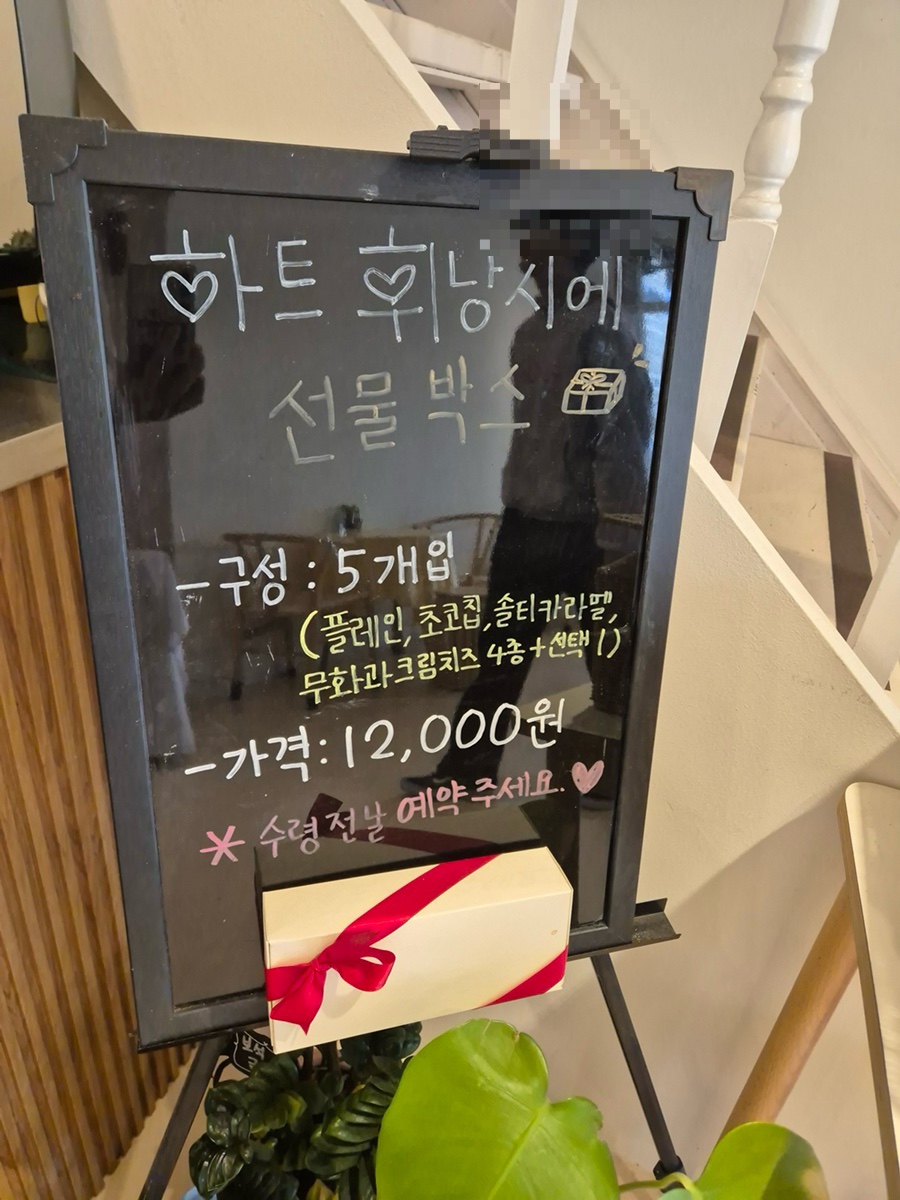 하트 휘낭시에
선물 박스
- 구성 : 5개입
(플레인, 초코칩, 솔티카라멜,
무화과크림치즈 4종 + 선택 1)
- 가격 : 12,000원
* 수령 전날 예약 주세요.